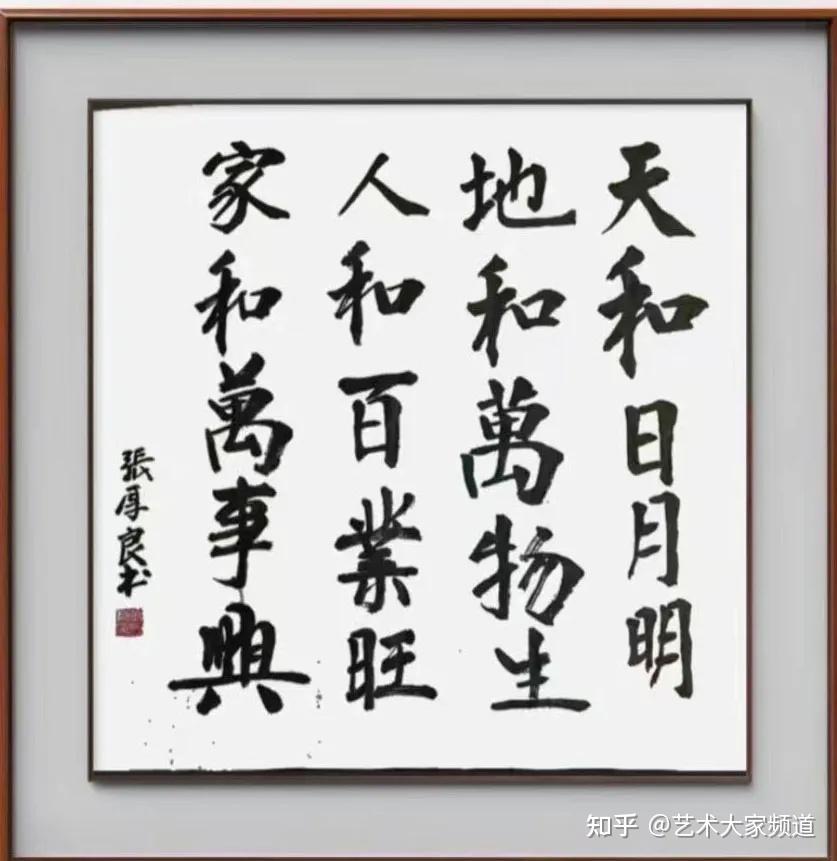 天和日月明
地和萬物生
人和百業旺
家和萬事興
張厚良书
知乎 @艺术大家频道